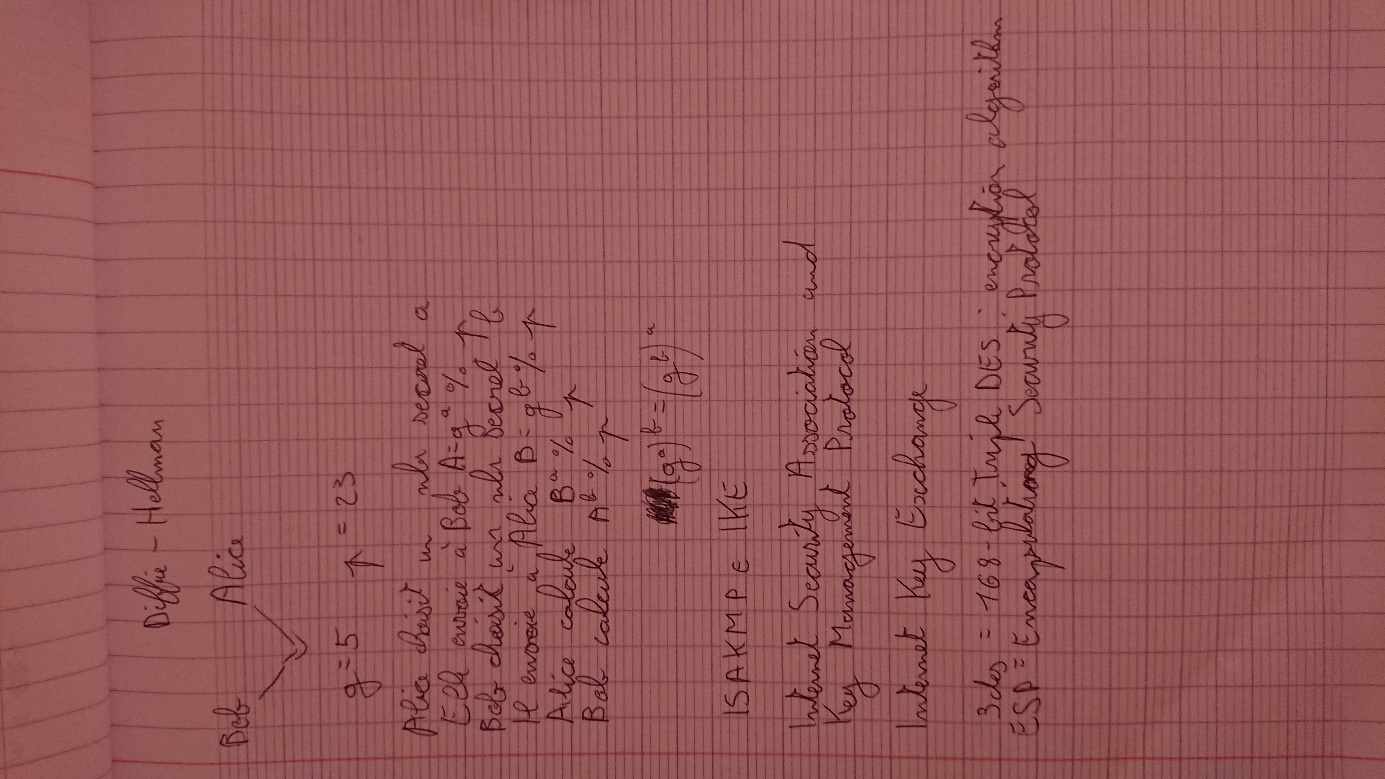 Diffie - Hellman
Bob Alice
g = 5 p = 23
Alice choisit un nbr secret a
Elle envoie à Bob A = g^a % p
Bob choisit un nbr secret b
Il envoie a Alice B = g^b % p
Alice calcule B^a % p
Bob calcule A^b % p
(g^a)^b = (g^b)^a
ISAKMP ∈ IKE
Internet Security Association and
Key Management Protocol
Internet Key Exchange
3des = 168-bit Triple DES : encryption algorithm
ESP = Security Protocol